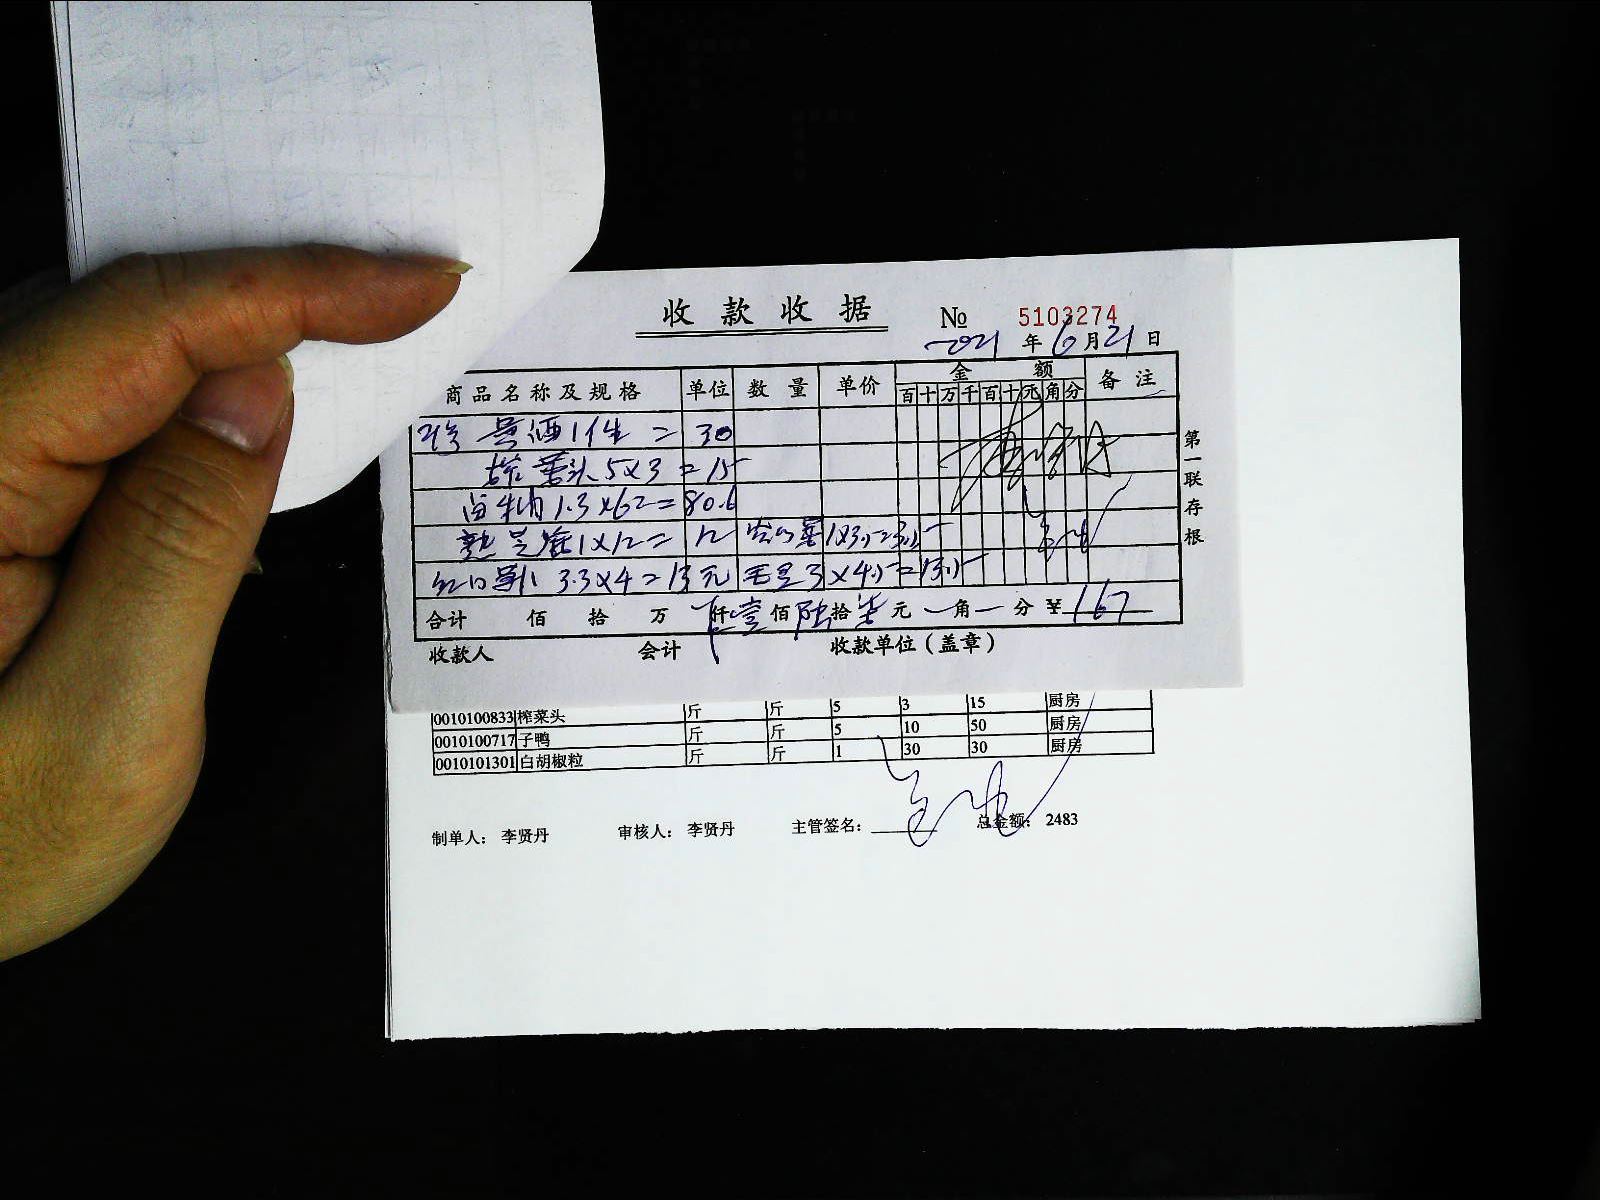 收款收据 № 5103274
2021年6月21日
商品名称及规格 单位 数量 单价 金额 备注
百十万千百十元角分
黄酒1件 = 30
榨菜头 5×3=15
白牛肉 1.3×62=80.6
1×12=12
3.3×4=13元
合计 佰 拾 万 仟壹佰陆拾柒元 角 分 ¥167
收款人 会计 收款单位(盖章)
第一联存根
0010100833 榨菜头 斤 斤 5 3 15 厨房
0010100717 子鸭 斤 斤 5 10 50 厨房
0010101301 白胡椒粒 斤 斤 1 30 30 厨房
制单人: 李贤丹 审核人: 李贤丹 主管签名: 总金额: 2483